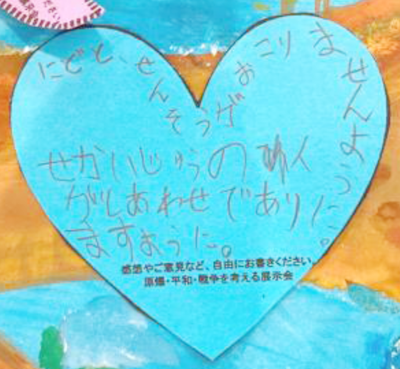 にどと、せんそうが
おこりませんように。
せかいじゅうの人
がしあわせであり
ますように。
感想やご意見など、自由にお書きください。
原爆・平和・戦争を考える展示会